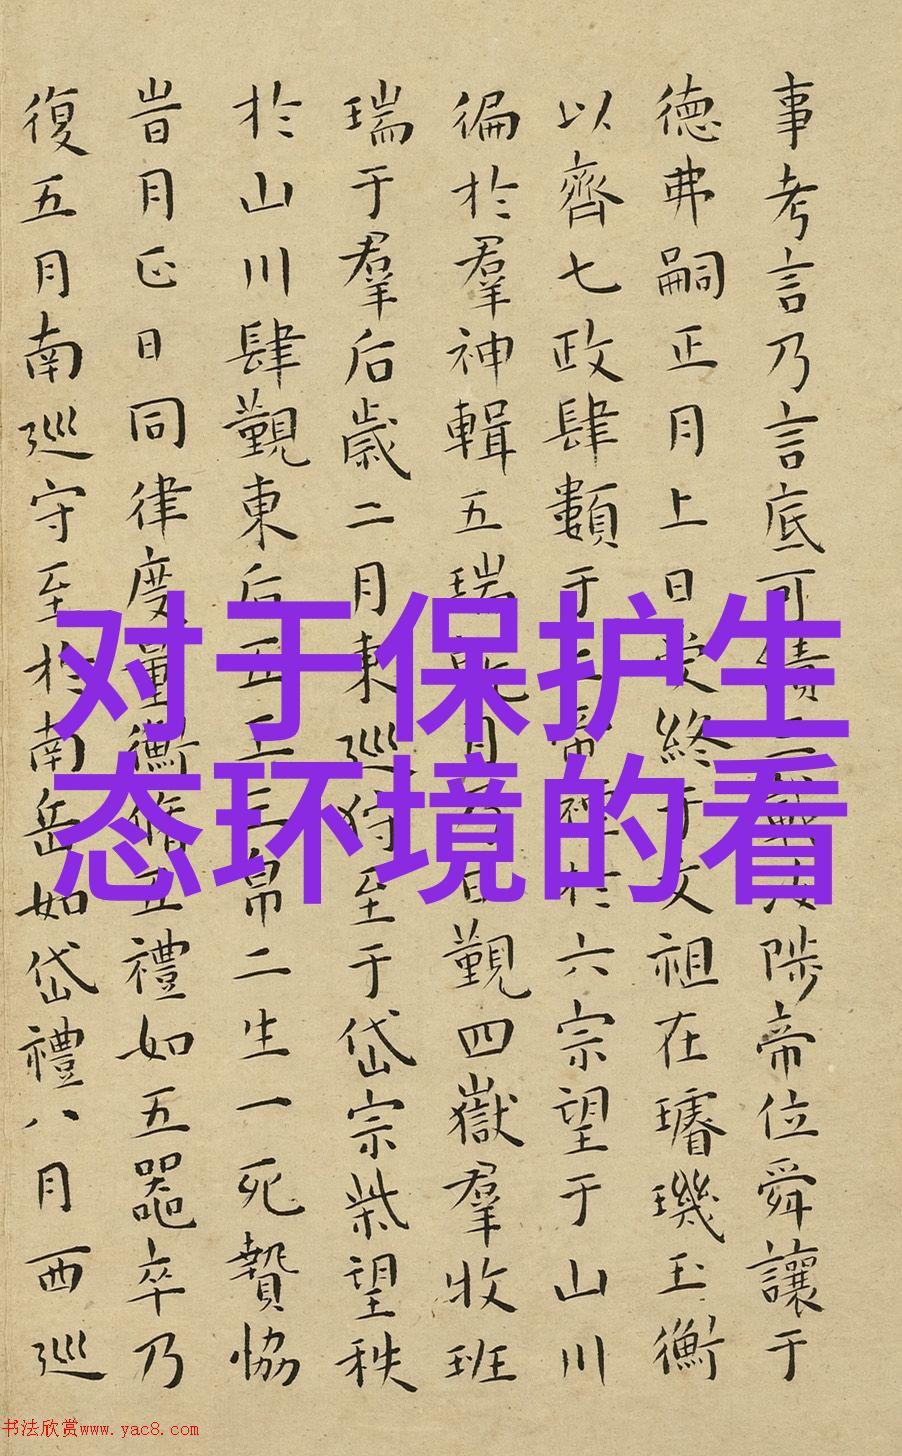 事考言乃言底可績三載汝陟帝位舜讓于
德弗嗣正月上日受終于文祖在璿璣玉衡
以齊七政肆類于上帝禋於六宗望于山川
徧於羣神輯五瑞既月乃日覲四嶽羣牧班
瑞于羣后歲二月東巡狩至于岱宗柴望秩
於山川肆覲東后五玉三帛二生一死贄協
旹月正日同律度量衡脩五禮如五器卒乃
復五月南巡守至於南岳如岱禮八月西巡
对于保护生
态环境的看
书法欣赏www.yac8.com